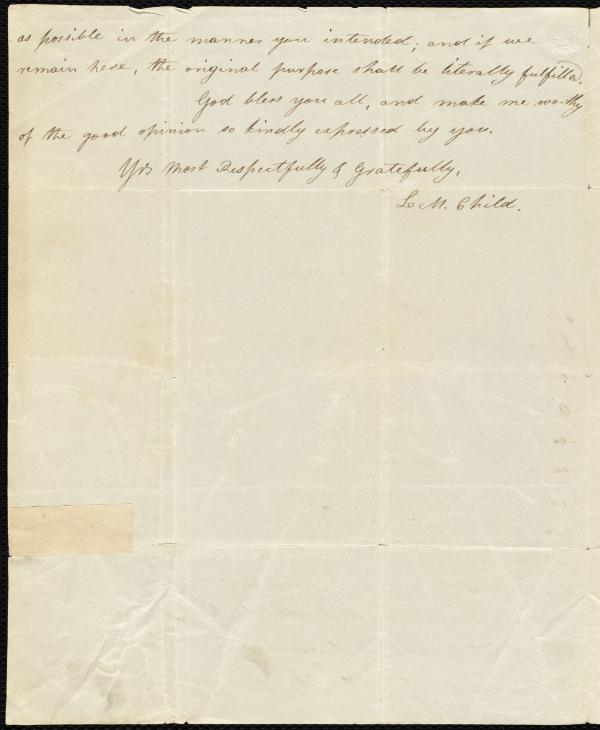 as possible in the manner you intended; and if we
remain here, the original purpose shall be literally fulfilled.
God bless you all, and make me worthy
of the good opinion so kindly expressed by you.
Yrs Most Respectfully & Gratefully,
L. M. Child.